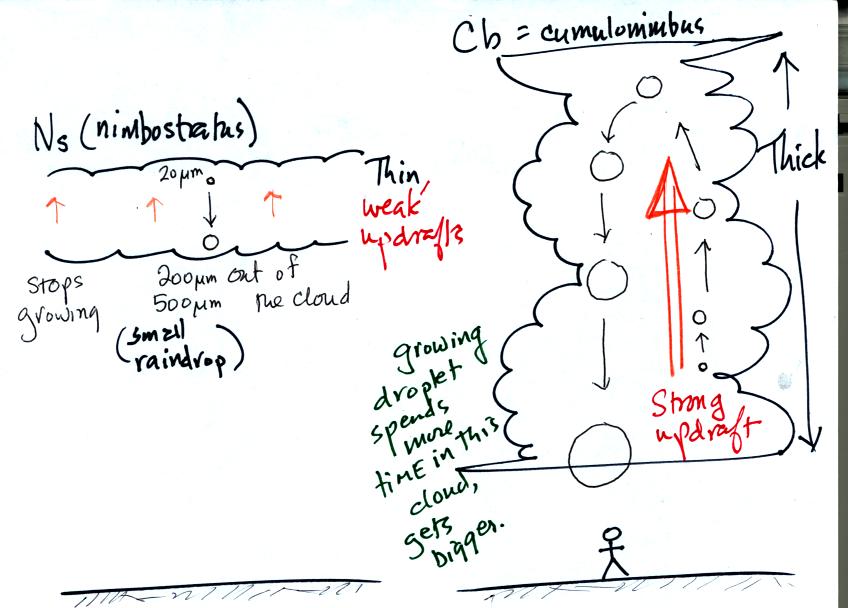 Cb = cumulonimbus
Ns (nimbostratus)
20 µm
Thin
weak
updrafts
Thick
Stops
growing
200 µm
500 µm
out of
the cloud
(small
raindrop)
growing
droplet
spends
more
time in this
cloud,
gets
bigger.
Strong
updraft